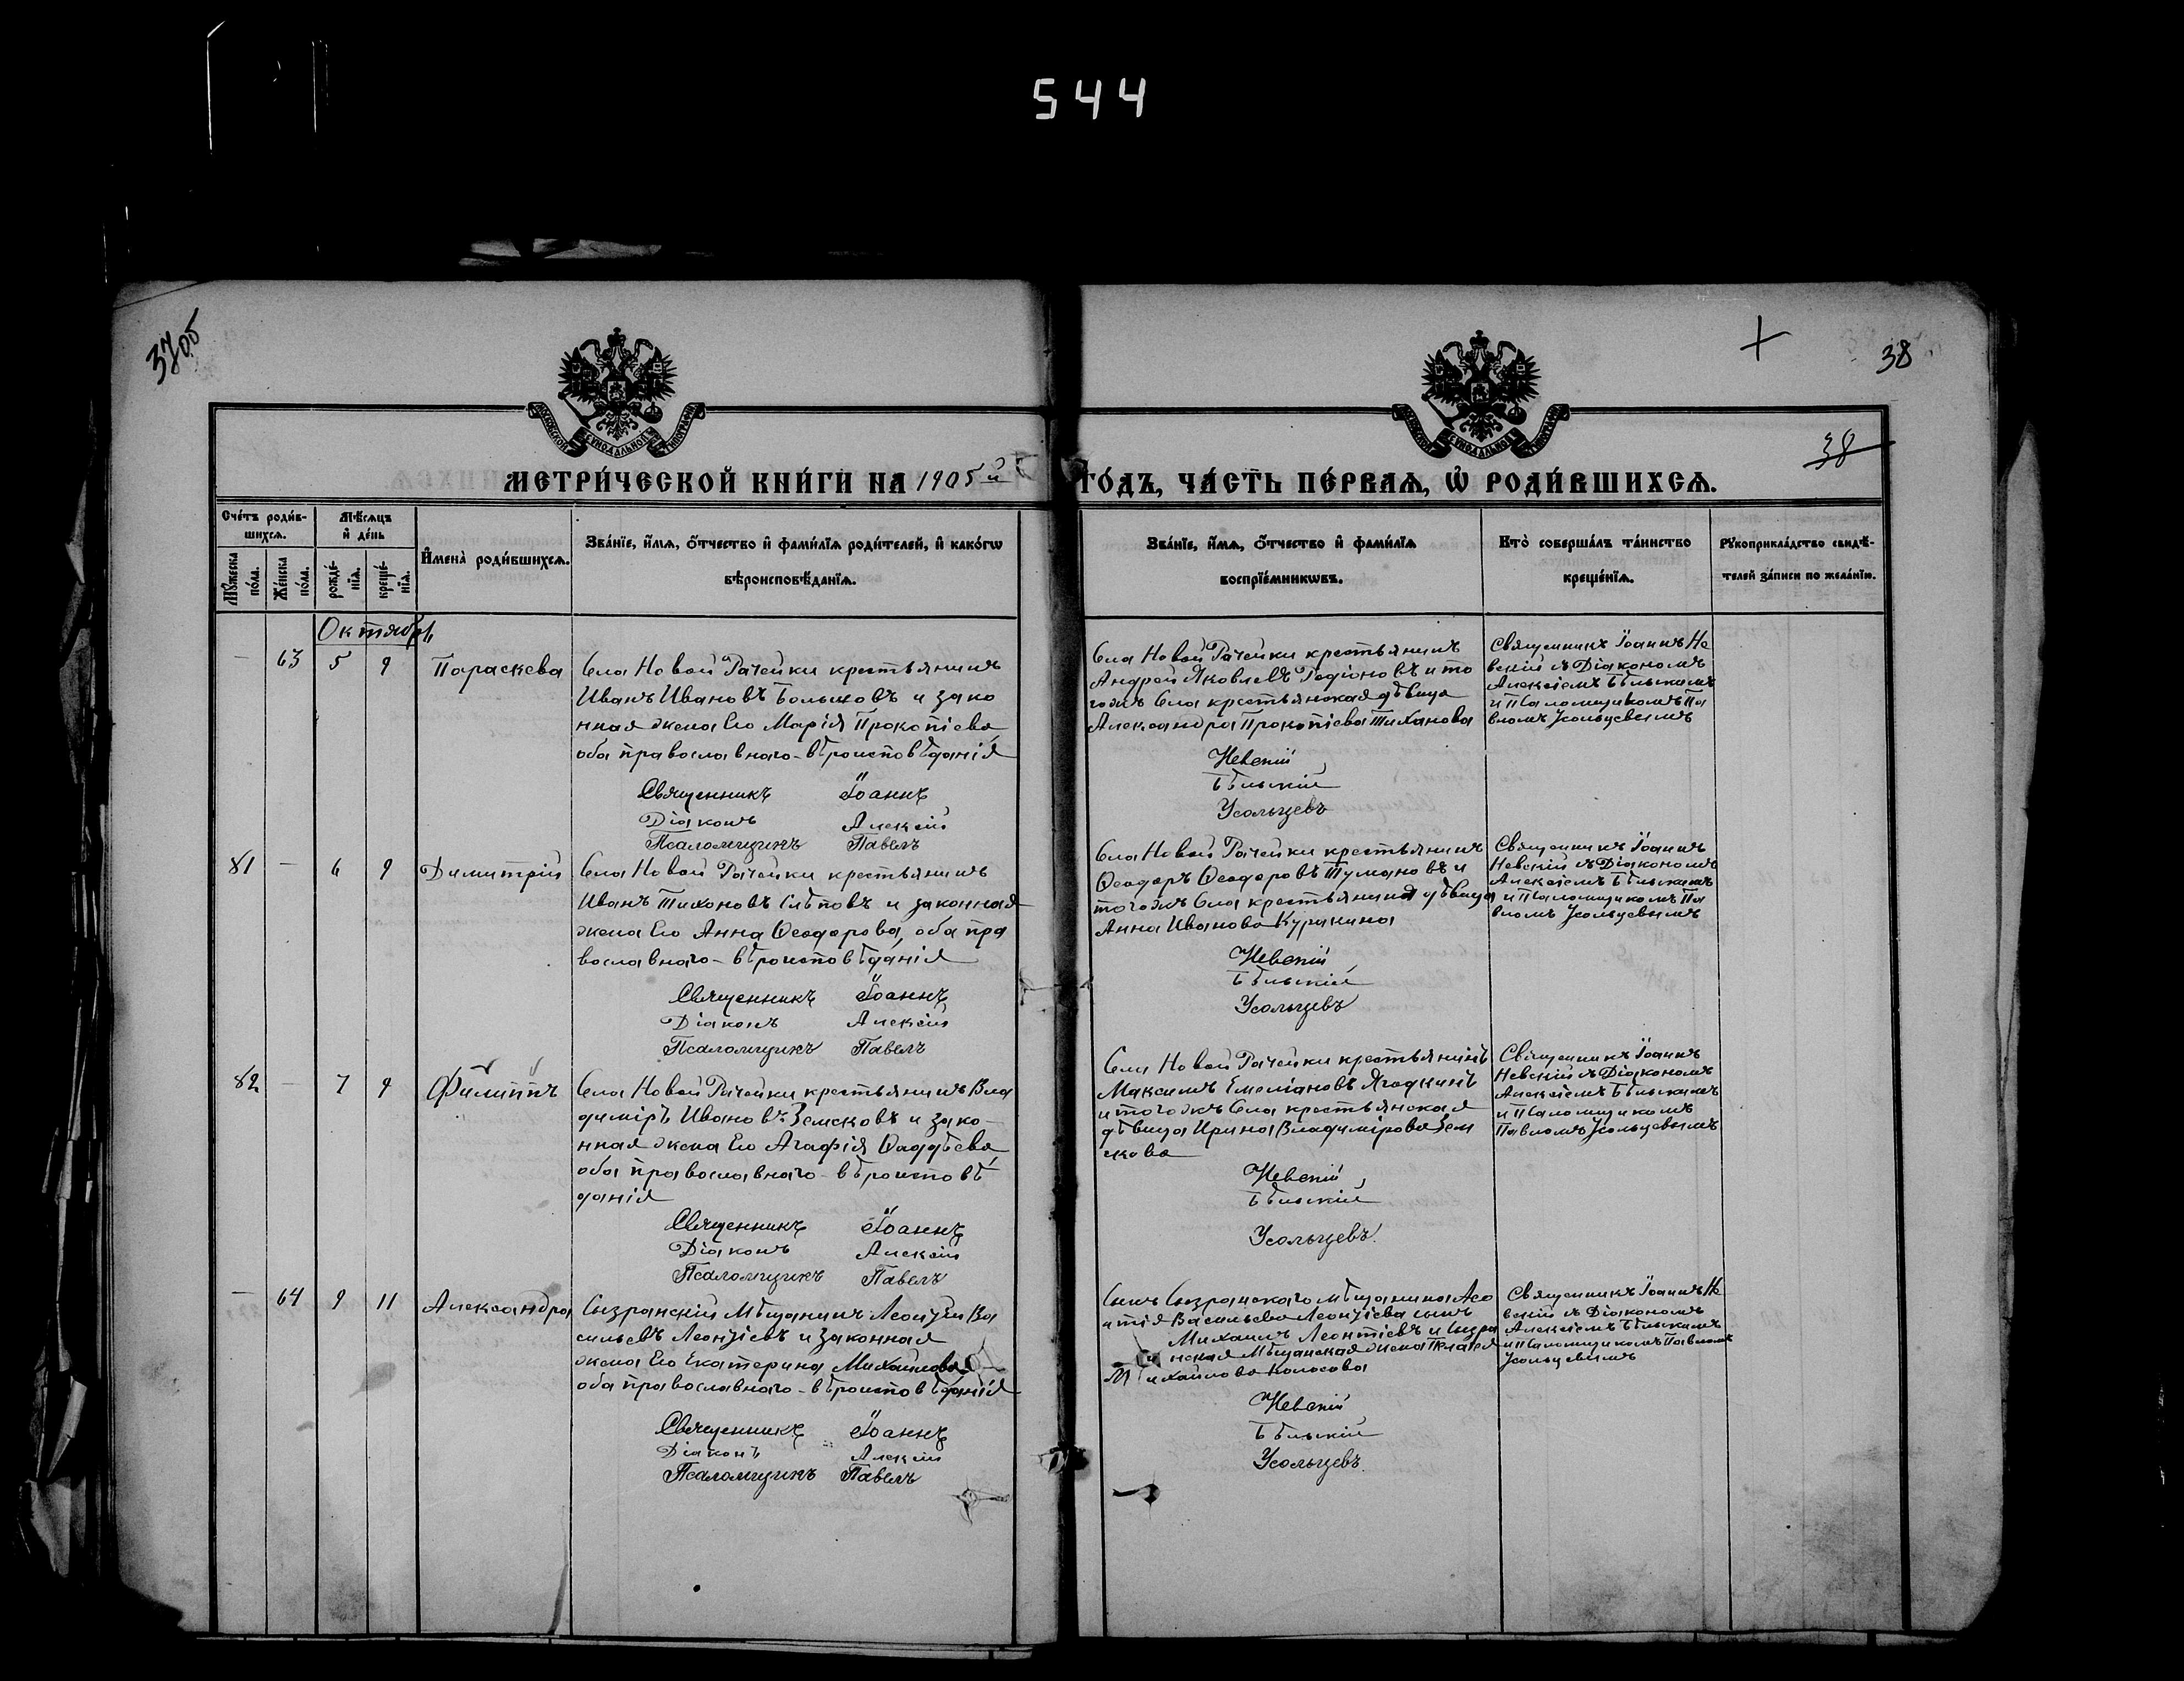 544
37об
38
38
МОСКОВСКОЙ СѴНОДАЛЬНОЙ ТИПОГРАФІИ
МОСКОВСКОЙ СѴНОДАЛЬНОЙ ТИПОГРАФІИ
МЕТРИ́ЧЕСКОЙ КНИ́ГИ НА 1905й ГО́ДЪ, ЧА́СТЬ ПЕ́РВАѦ, Ѡ҆ РОДИ́ВШИХСѦ.
Сче́тъ роди́в-
шихсѧ.
Мѹ́жеска по́ла.
Же́нска по́ла.
Мѣ́сѧцъ
и҆ де́нь
рожде́-
нїѧ.
креще́-
нїѧ.
И҆мена̀ роди́вшихсѧ.
Зва́нїе, и҆́мѧ, ѻ҆́тчество и҆ фами́лїѧ роди́телей, и҆ како́гѡ
вѣроисповѣ́данїѧ.
Зва́нїе, и҆́мѧ, ѻ҆́тчество и҆ фами́лїѧ
воспрїе́мникѡвъ.
Кто̀ соверша́лъ та́инство
креще́нїѧ.
Рꙋкоприкла́дство свидѣ́-
телей за́писи по жела́нїю.
Октябрь
— 63 5 9 Параскева
Села Новой Рачейки крестьянинъ
Иванъ Ивановъ и зако
нная жена Его Марія Прокопіева
оба православнаго-вѣроисповѣданія
Священникъ Іоаннъ
Діаконъ Алексій
Псаломщикъ Павелъ
Села Новой Рачейки крестьянинъ
Андрей Яковлевъ Родіоновъ и то
гожъ Села крестьянская дѣвица
Александра Прокопіева Тиханова
Невскій
Бѣльскій
Усольцевъ
Священникъ Іоаннъ Не
вскій съ Діакономъ
Алексіемъ Бѣльскимъ
и Псаломщикомъ Па
вломъ Усольцевымъ
81 — 6 9 Димитрій
Села Новой Рачейки крестьянинъ
Иванъ Тихоновъ Слѣповъ и законная
жена Его Анна Ѳеодорова, оба пра
вославнаго-вѣроисповѣданія
Священникъ Іоаннъ
Діаконъ Алексій
Псаломщикъ Павелъ
Села Новой Рачейки крестьянинъ
Ѳеодоръ Ѳеодоровъ Тумановъ и
тогожъ Села дѣвица
Анна Иванова Куранина
Невскій
Бѣльскій
Усольцевъ
Священникъ Іоаннъ
Невскій съ Діакономъ
Алексіемъ Бѣльскимъ
и Псаломщикомъ Па
вломъ Усольцевымъ
82 — 7 9 Филиппъ
Села Новой Рачейки крестьянинъ Вла
диміръ Ивановъ Земсковъ и зако-
нная жена Его Агафія Ѳаддѣева
оба православнаго-вѣроисповѣ
данія
Священникъ Іоаннъ
Діаконъ Алексій
Псаломщикъ Павелъ
Села Новой Рачейки крестьянинъ
Максимъ Емеліановъ Ягодкинъ
и тогожъ Села крестьянская
дѣвица Ирина Владимірова Зем
скова
Невскій
Бѣльскій
Усольцевъ.
Священникъ Іоаннъ
Невскій съ Діакономъ
Алексіемъ Бѣльскимъ
и Псаломщикомъ
Павломъ Усольцевымъ
— 64 9 11 Александра
Сызранскій Мѣщанинъ Леонтій Ва
сильевъ Леонтіевъ и законная
жена Его Екатерина Михайлова
оба православнаго-вѣроисповѣданія
Священникъ Іоаннъ
Діаконъ Алексій
Псаломщикъ Павелъ
Сынъ Сызранскаго мѣщанина
Васильева Леонтіева сынъ
Михаилъ Леонтіевъ и Сызра
нская Мѣщанская жена Пелагея
Михайлова Колосова
Невскій
Бѣльскій
Усольцевъ.
Священникъ Іоаннъ Не
вскій съ Діакономъ
Алексіемъ Бѣльскимъ
и Псаломщикомъ Павломъ
Усольцевымъ